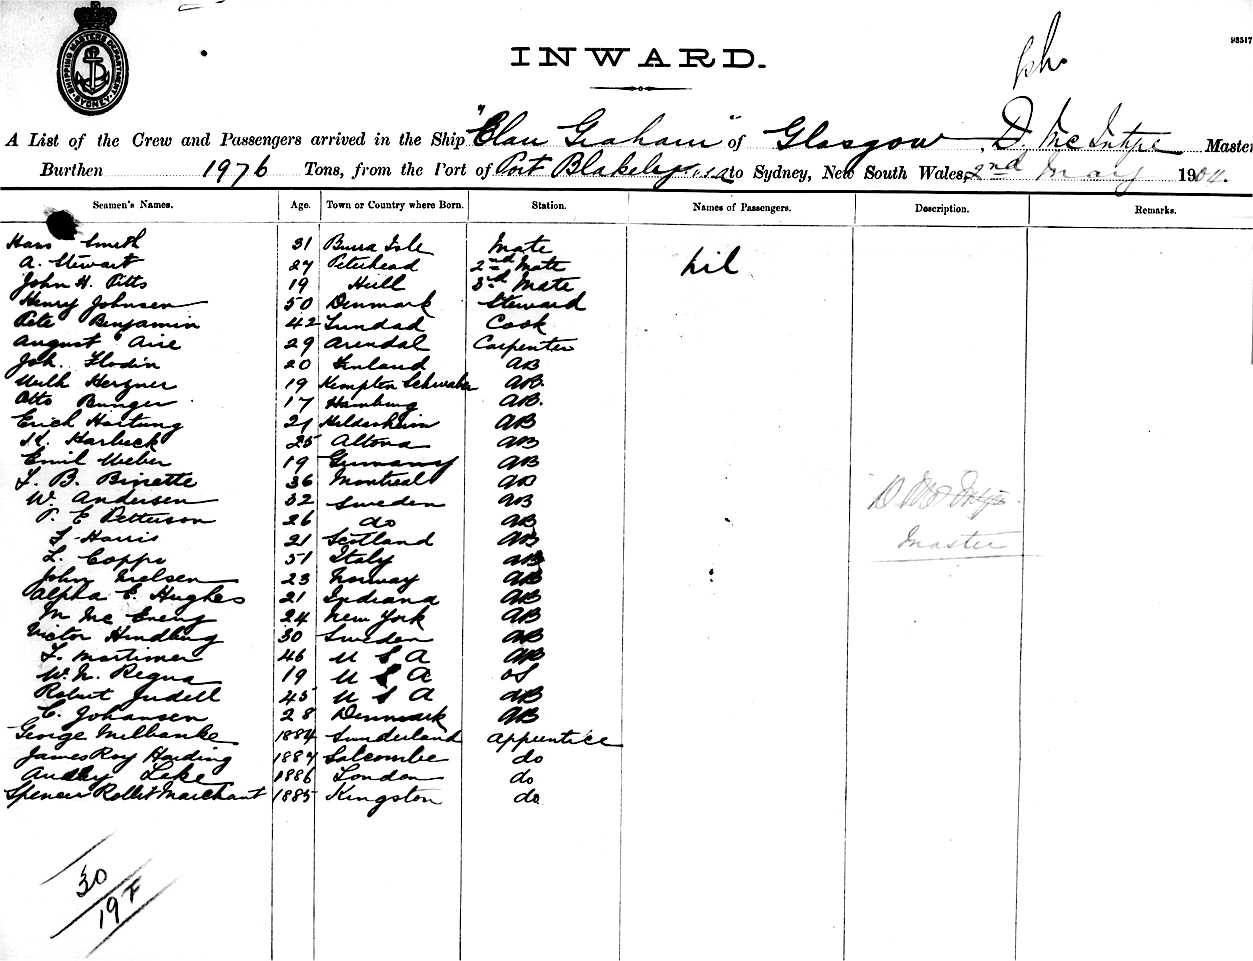 SHIPPING MASTERS DEPARTMENT SYDNEY
93517
INWARD.
A List of the Crew and Passengers arrived in the Ship "Clan Graham" of Glasgow, D. McIntyre Master
Burthen 1976 Tons, from the Port of Port Blakeley U.S.A to Sydney, New South Wales, 2nd May 1904.
Seamen's Names. Age. Town or Country where Born. Station. Names of Passengers. Description. Remarks.
Hans Smith 31 Burra Isle Mate
A. Stewart 27 Peterhead 2nd Mate nil
John H. Pitts 19 Hull 3rd Mate
Henry Johnsen 50 Denmark Steward
Pete Benjamin 42 Cook
August Aire 29 Arendal Carpenter
Joh. Flodin 20 Finland AB
Herzner 19 Kempten Schwaben AB.
Otto Bunger 17 Hamburg AB.
Erich Hartung 21 Hildesheim AB
H. Harbeck 25 Altona AB
Emil Weber 19 Germany AB
L. B. Binette 36 Montreal AB
W. Andersen 32 Sweden AB
P. E Petterson 26 do AB
Harris 21 Scotland AB
L. Coppe 51 Italy AB
John Nielsen 23 Norway AB
Alpha E. Hughes 21 Indiana AB
M Mc Eneny 24 New York AB
Victor Hindling 30 Sweden AB
Mortimer 46 U S A AB
W. N. Regna 19 U S A OS
Robert Judell 45 U S A AB
C. Johansen 28 Denmark AB
George Milbanke 1884 Sunderland Apprentice
James Roy Harding 1887 Salcombe do
Audley Leke 1886 London do
Spencer Rollit Marchant 1885 Kingston do
D McIntyre
Master
30
19 F